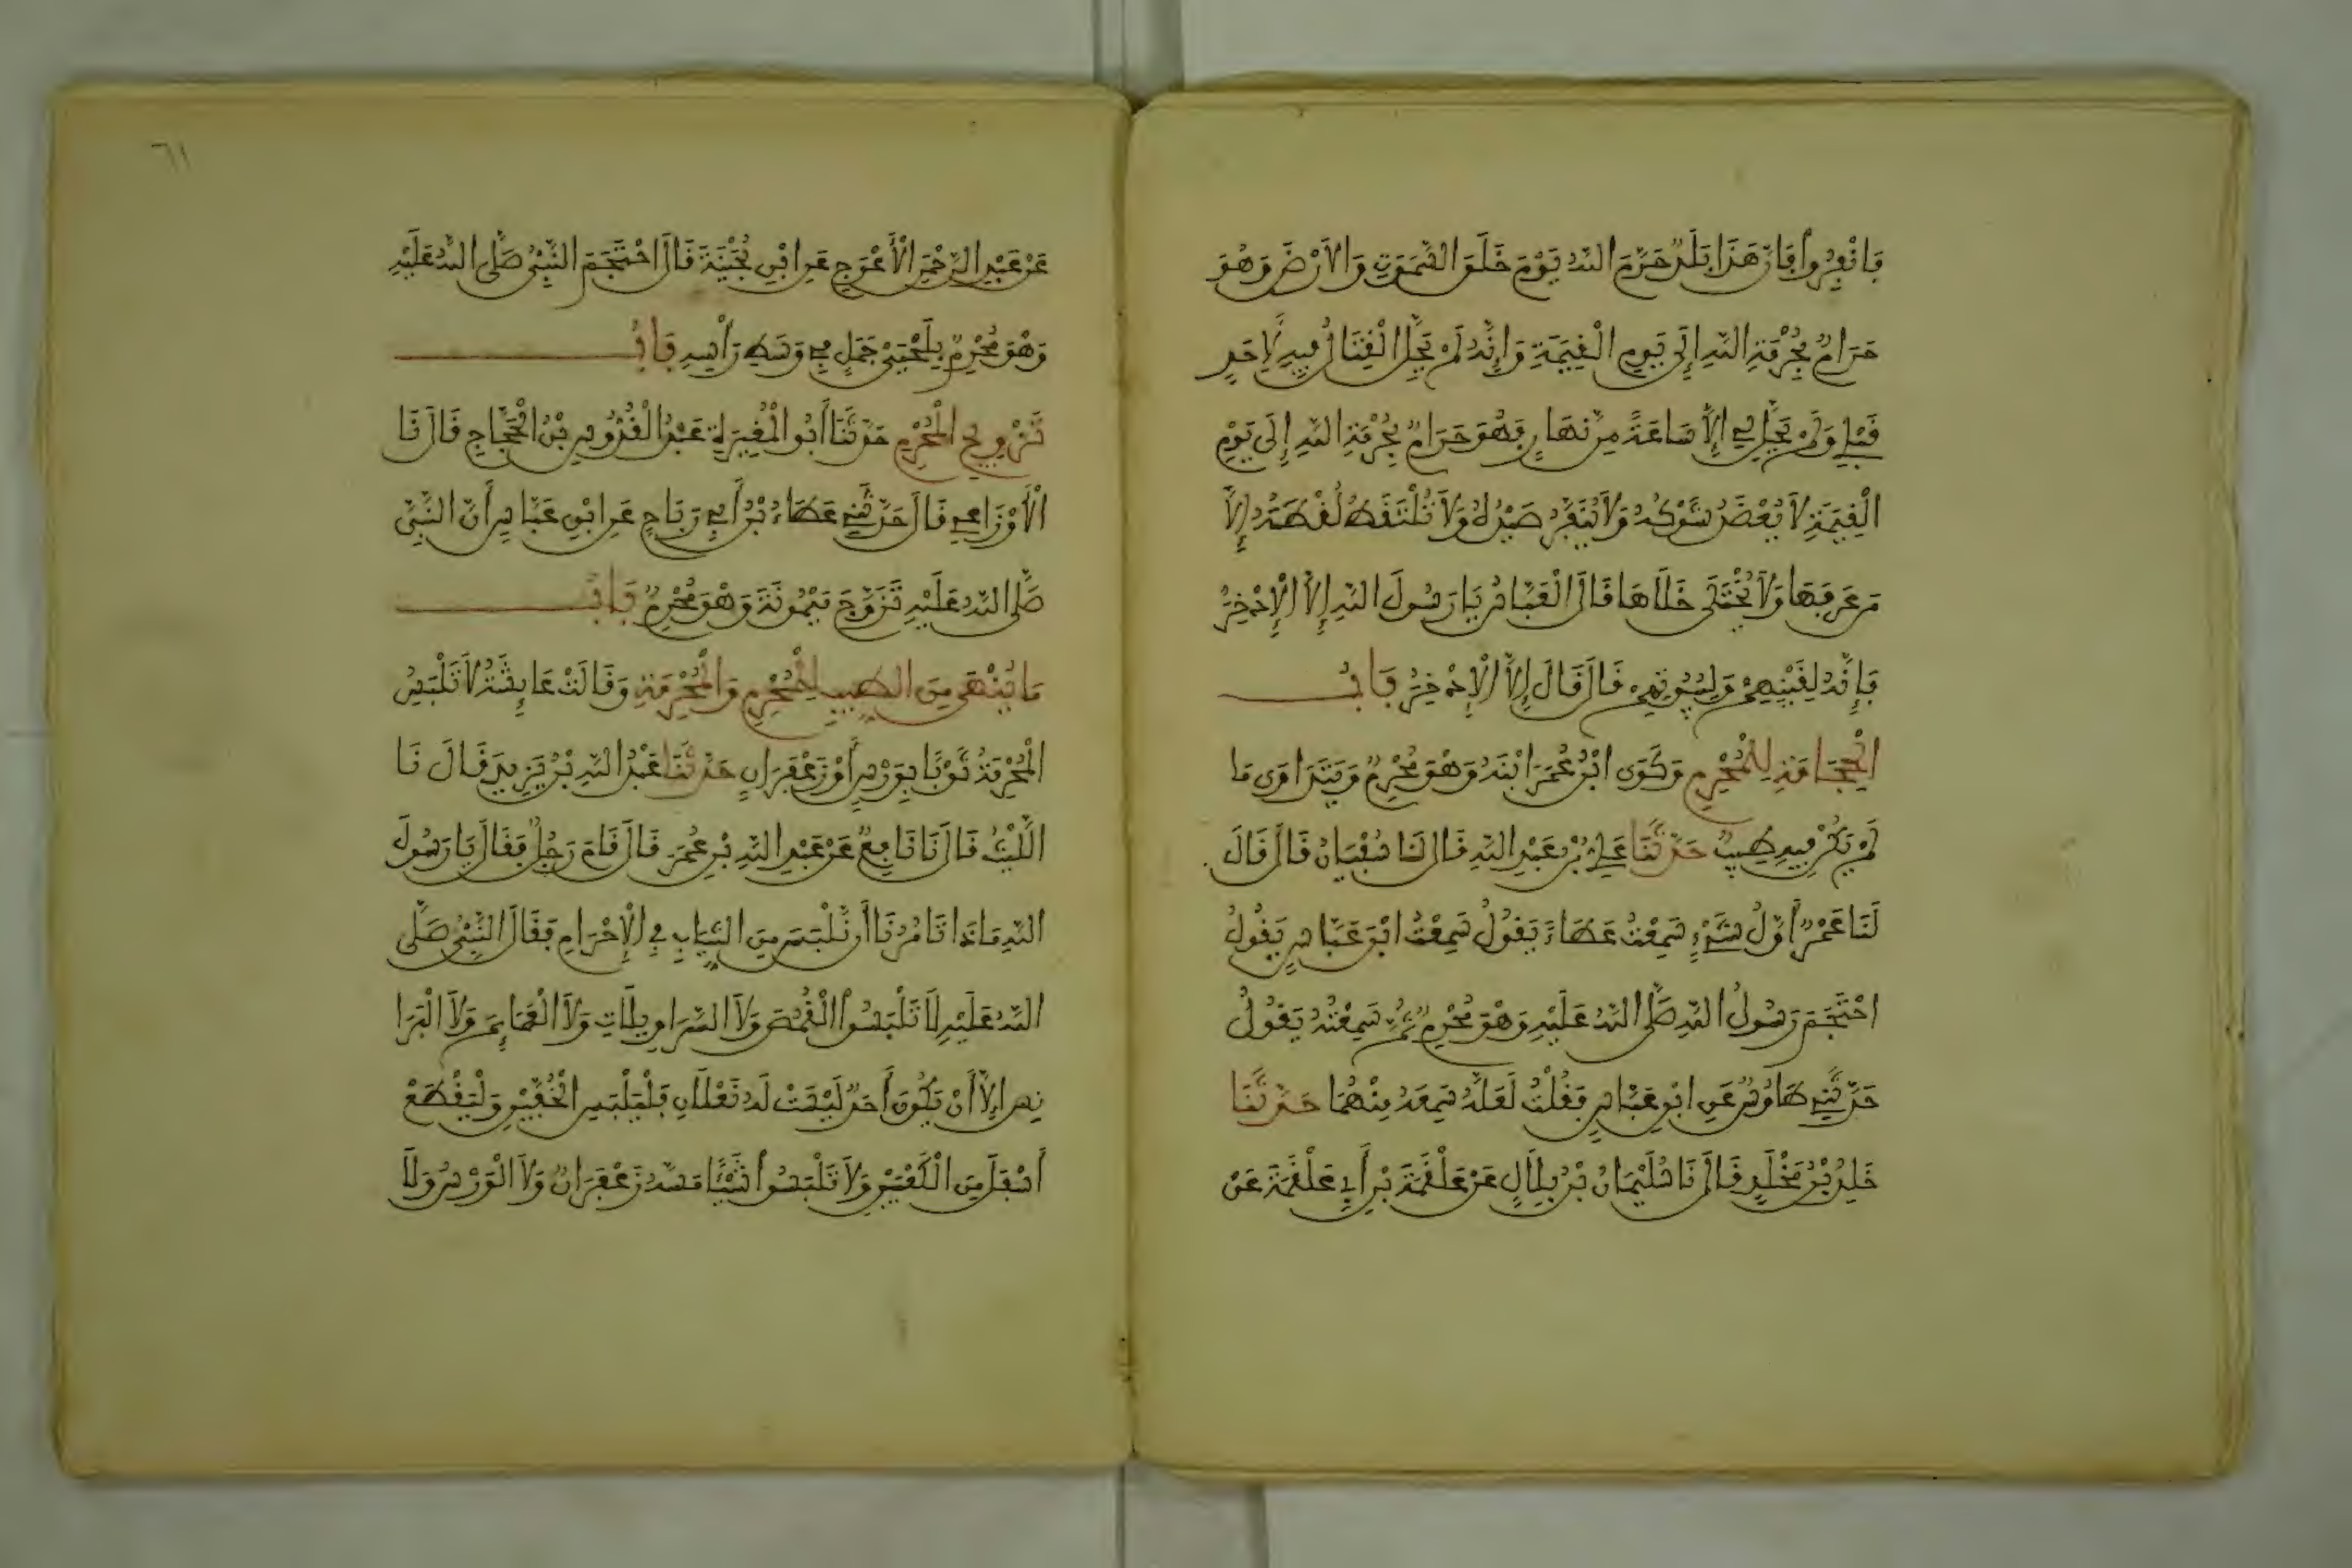 فَانْفِرُوا فَإِنَّ هَذَا بَلَدٌ حَرَّمَ اللَّهُ يَوْمَ خَلَقَ السَّمَوَتِ وَالْأَرْضَ وَهُوَ
حَرَامٌ بِحُرْمَةِ اللَّهِ إِلَى يَوْمِ الْقِيَمَةِ وَإِنَّهُ لَمْ يَحِلَّ الْقِتَالُ فِيهِ لِأَحَدٍ
قَبْلِي وَلَمْ يَحِلَّ لِي إِلَّا سَاعَةً مِنْ نَهَارٍ فَهُوَ حَرَامٌ بِحُرْمَةِ اللَّهِ إِلَى يَوْمِ
الْقِيَمَةِ لَا يُعْضَدُ شَوْكُهُ وَلَا يُنَفَّرُ صَيْدُهُ وَلَا تُلْتَقَطُ لُقْطَتُهُ إِلَّا
مَنْ عَرَّفَهَا وَلَا يُخْتَلَى خَلَاهَا قَالَ الْعَبَّاسُ يَا رَسُولَ اللَّهِ إِلَّا الْإِذْخِرَ
فَإِنَّهُ لِقَيْنِهِمْ وَلِبُيُوتِهِمْ قَالَ قَالَ إِلَّا الْإِذْخِرَ بَابُ
الْحِجَامَةِ لِلْمُحْرِمِ وَكَوَى ابْنُ عُمَرَ ابْنَهُ وَهُوَ مُحْرِمٌ وَيَتَدَاوَى مَا
لَمْ يَكُنْ فِيهِ طِيبٌ حَدَّثَنَا عَلِيُّ بْنُ عَبْدِ اللَّهِ قَالَ نَا سُفْيَانُ قَالَ قَالَ
لَنَا عَمْرٌو أَوَّلُ شَيْءٍ سَمِعْتُ عَطَاءً يَقُولُ سَمِعْتُ ابْنَ عَبَّاسٍ يَقُولُ
احْتَجَمَ رَسُولُ اللَّهِ صَلَّى اللَّهُ عَلَيْهِ وَهُوَ مُحْرِمٌ ثُمَّ سَمِعْتُهُ يَقُولُ
حَدَّثَنِي طَاوُسٌ عَنِ ابْنِ عَبَّاسٍ فَقُلْتُ لَعَلَّهُ سَمِعَهُ مِنْهُمَا حَدَّثَنَا
خَلِدُ بْنُ مَخْلَدٍ قَالَ نَا سُلَيْمَانُ بْنُ بِلَالٍ عَنْ عَلْقَمَةَ بْنِ أَبِي عَلْقَمَةَ عَنْ
٦١
عَنْ عَبْدِ الرَّحْمَنِ الْأَعْرَجِ عَنِ ابْنِ بُحَيْنَةَ قَالَ احْتَجَمَ النَّبِيُّ صَلَّى اللَّهُ عَلَيْهِ
وَهُوَ مُحْرِمٌ بِلَحْيَيْ جَمَلٍ فِي وَسَطِ رَأْسِهِ بَابُ
تَزْوِيجِ الْمُحْرِمِ حَدَّثَنَا أَبُو الْمُغِيرَةِ عَبْدُ الْقُدُّوسِ بْنُ الْحَجَّاجِ قَالَ نَا
الْأَوْزَاعِي قَالَ حَدَّثَنِي عَطَاءُ بْنُ أَبِي رَبَاحٍ عَنِ ابْنِ عَبَّاسٍ أَنَّ النَّبِيَّ
صَلَّى اللَّهُ عَلَيْهِ تَزَوَّجَ مَيْمُونَةَ وَهُوَ مُحْرِمٌ بَابُ
مَا يُنْهَى مِنَ الطِّيبِ لِلْمُحْرِمِ وَالْمُحْرِمَةِ وَقَالَتْ عَائِشَةُ لَا تَلْبَسُ
الْمُحْرِمَةُ ثَوْبًا بِوَرْسٍ أَوْ زَعْفَرَانٍ حَدَّثَنَا عَبْدُ اللَّهِ بْنُ يَزِيدَ قَالَ نَا
اللَّيْثُ قَالَ نَا نَافِعٌ عَنْ عَبْدِ اللَّهِ بْنِ عُمَرَ قَالَ قَامَ رَجُلٌ فَقَالَ يَا رَسُولَ
اللَّهِ مَاذَا تَأْمُرُنَا أَنْ نَلْبَسَ مِنَ الثِّيَابِ فِي الْإِحْرَامِ فَقَالَ النَّبِيُّ صَلَّى
اللَّهُ عَلَيْهِ لَا تَلْبَسُوا الْقُمُصَ وَلَا السَّرَاوِيلَاتِ وَلَا الْعَمَائِمَ وَلَا الْبَرَا
نِسَ إِلَّا أَنْ يَكُونَ أَحَدٌ لَيْسَتْ لَهُ نَعْلَانِ فَلْيَلْبَسِ الْخُفَّيْنِ وَلْيَقْطَعْ
أَسْفَلَ مِنَ الْكَعْبَيْنِ وَلَا تَلْبَسُوا شَيْئًا مَسَّهُ زَعْفَرَانٌ وَلَا الْوَرْسُ وَلَا